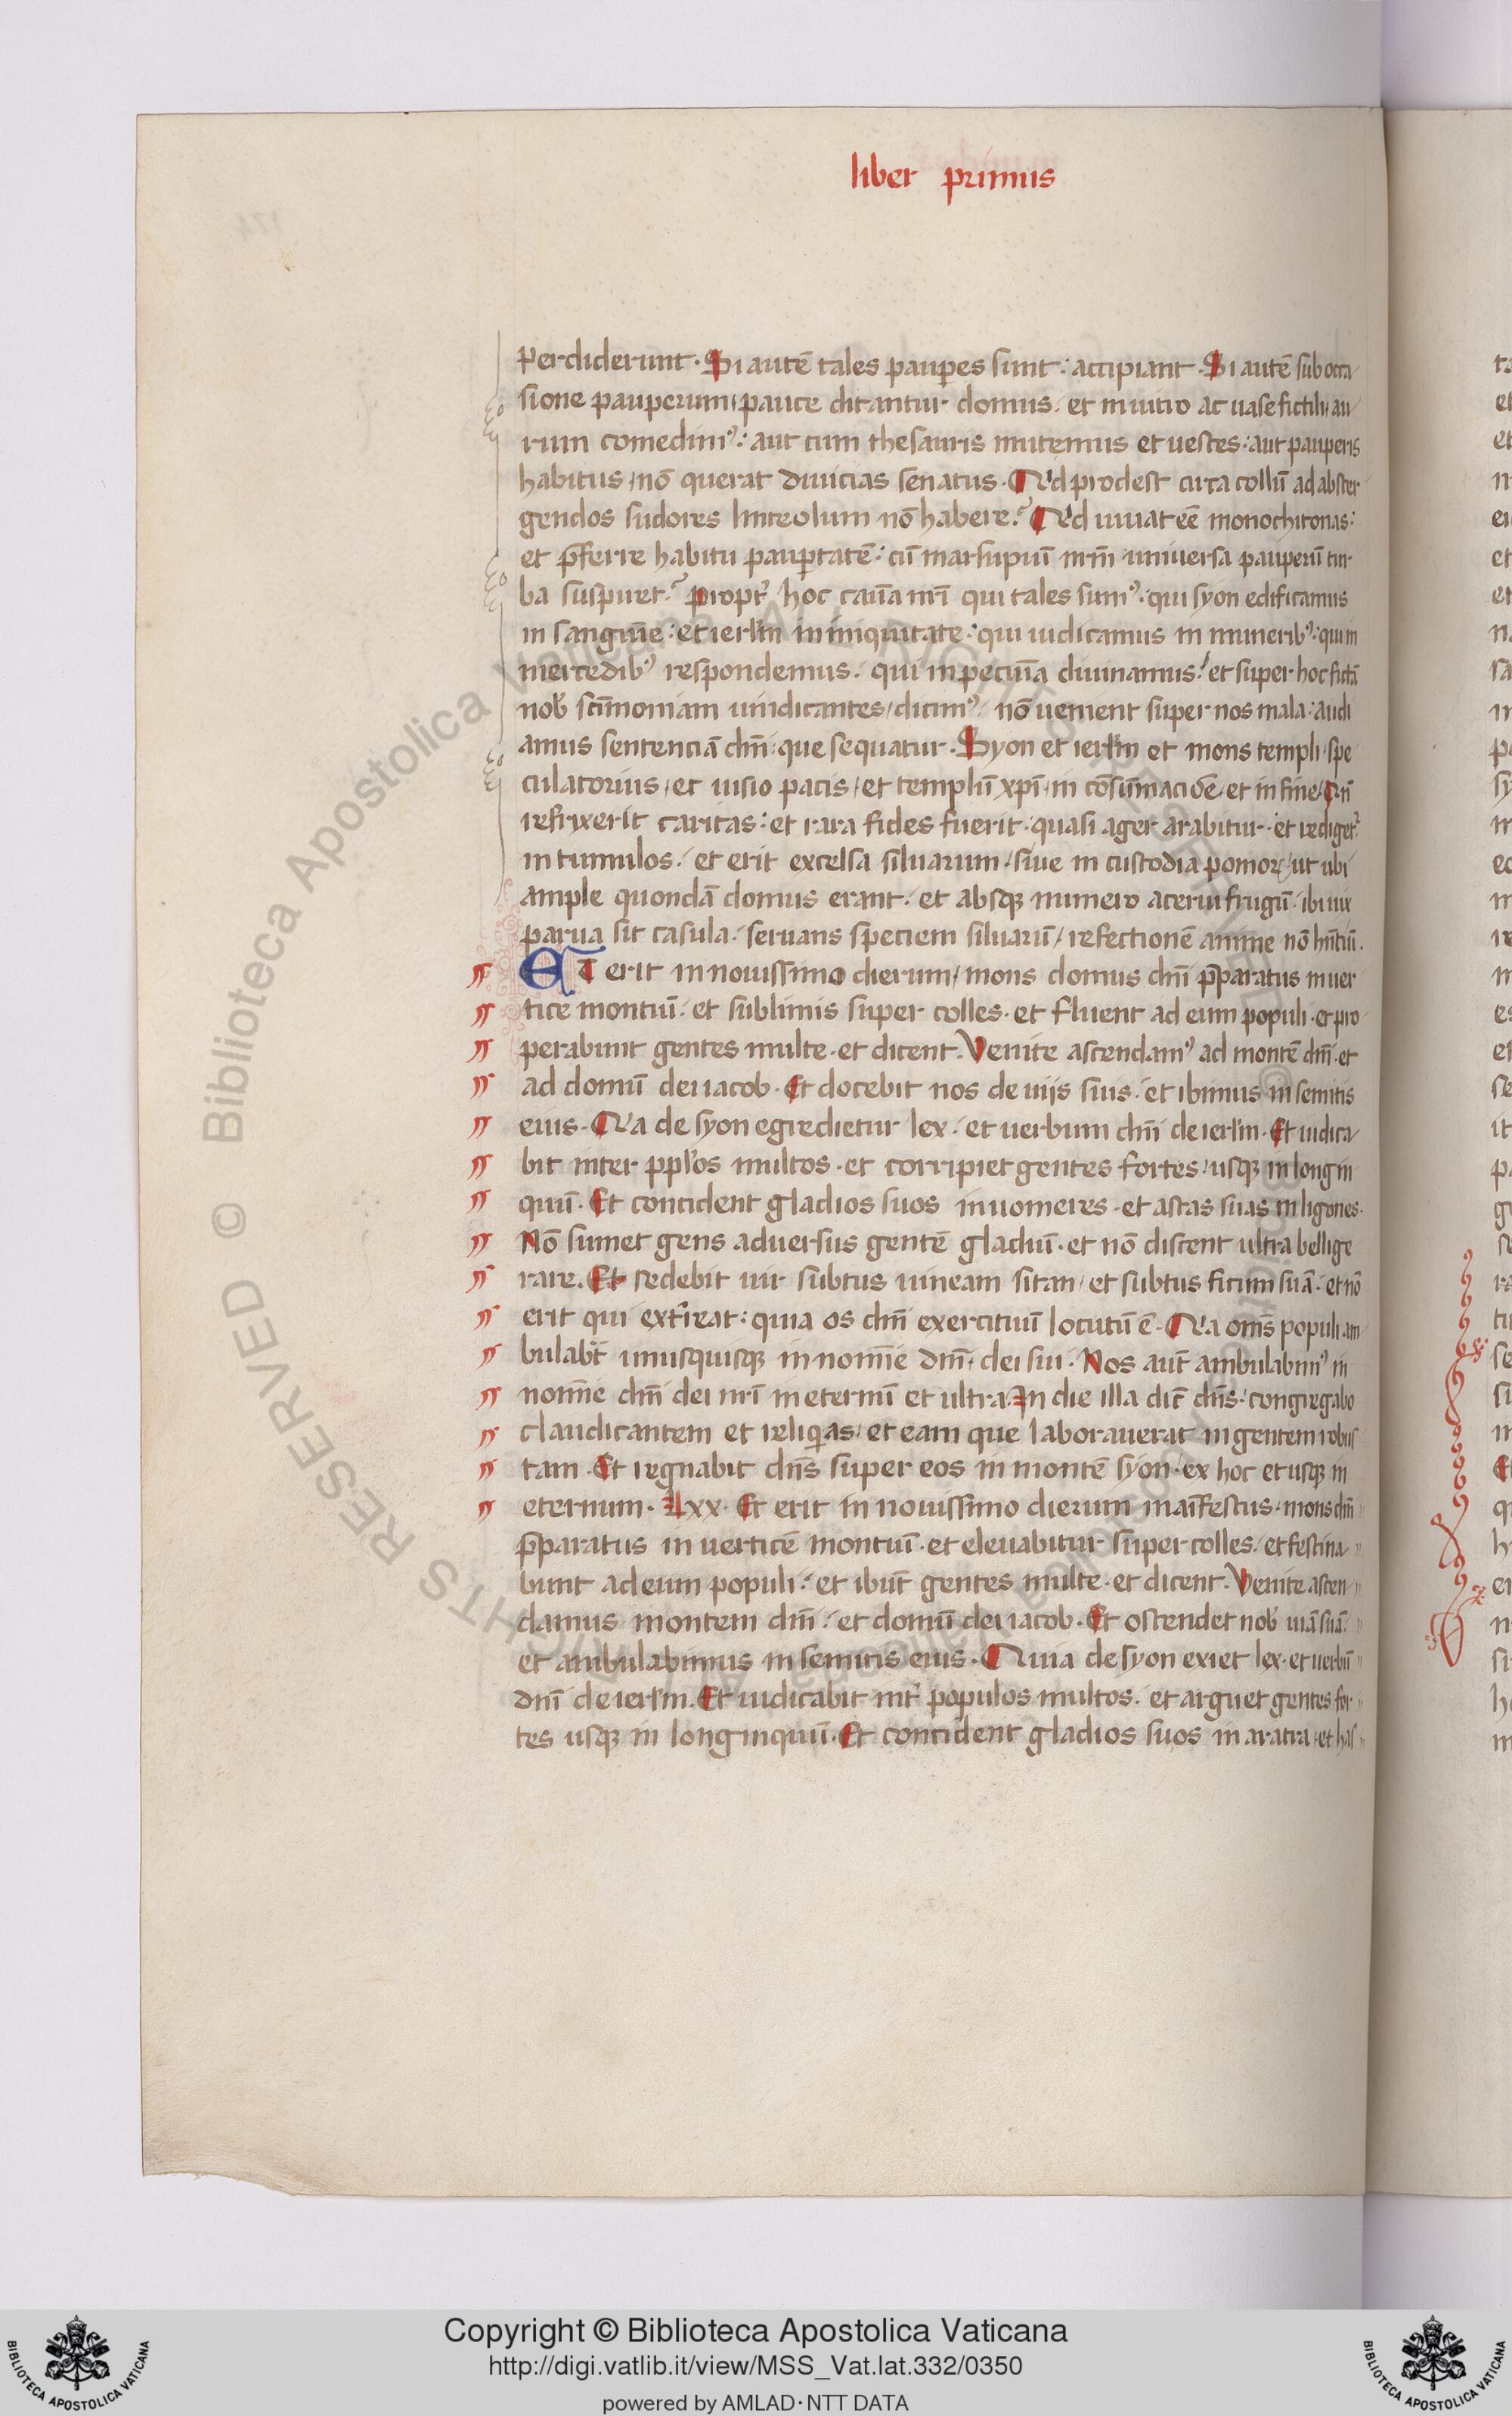 liber primus
perdiderunt. Si autē tales paup̄es sunt: accipiant. Si autē sub occa
sione pauperum, pauce ditantur domus. et in uitro ac uase fictili, au
rum comedimꝰ: aut cum thesauris mutemus et uestes: aut pauperis
habitus, nō querat diuicias senatus. Qͥd prodest circa collū ad abster
gendos sudores linteolum nō habere? Qͥd iuuat eē monochitonas:
et p̄ferre habitu paup̄tatē: cū marsupiū nr̄m uniuersa pauperū tur
ba suspiret? propt̾ hoc cauā nr̄i qui tales sumꝰ. qui syon edificamus
in sanguīe: et ierl̄m in iniquitate: qui iudicamus in muneribꝰ: qui in
mercedibꝰ respondemus. qui in pecunīa diuinamus: et super hoc fictā
nob̾ sc̄imoniam uindicantes, dicimꝰ. nō uenient super nos mala: audi
amus sentenciā dn̄i: que sequatur. Syon et ierl̄m et mons templi, spe
culatorius, et uisio pacis, et templū xp̄i, in cōsūmaciōe, et in fine, qn̄
refrixerit caritas: et rara fides fuerit. quasi ager arabitur. et rediget̾
in tumulos. et erit excelsa siluarum, siue in custodia pomoꝝ, ut ubi
ample quondā domus erant. et absqꝫ numero acerui frugū. ibi uix
parua sit casula. seruans speciem siluarū, refectionē anime nō hn̄tiū.
ET erit in nouissimo dierum, mons domus dn̄i p̄paratus in uer
tice montiū. et sublimis super colles. et fluent ad eum populi. et pro
perabunt gentes multe. et dicent. Venite ascendamꝰ ad montē dn̄i. et
ad domū dei iacob. Et docebit nos de uijs suis. et ibimus in semitis
eius. Qͥa de syon egredietur lex. et uerbum dn̄i de ierl̄m. Et iudica
bit inter ppl̄os multos. et corripiet gentes fortes, usqꝫ in longin
quū. Et concident gladios suos in uomeres. et astas suas in ligones.
Nō sumet gens aduersus gentē gladiū. et nō discent ultra bellige
rare. Et sedebit uir subtus uineam suam, et subtus ficum suā. et nō
erit qui ext̾reat: quia os dn̄i exercituū locutū ē. Qͥa om̄s populi am
bulabt̄ unusquisqꝫ in nomīe dn̄i, dei sui. Nos aut̄ ambulabimꝰ in
nomīe dn̄i dei nr̄i in eternū et ultra. In die illa dic̄t dn̄s: congregabo
claudicantem et reliqͥas, et eam que laborauerat in gentem robus
tam. Et regnabit dn̄s super eos in montē syon, ex hoc et usqꝫ in
eternum. Lxx. Et erit in nouissimo dierum maīfestus, mons dn̄i
p̄paratus in uerticē montiū. et eleuabitur super colles. et festina
bunt ad eum populi. et ibūt gentes multe. et dicent. Venite ascen
damus montem dn̄i. et domū dei iacob. Et ostendet nob̾ uiā suā.
et ambulabimus in semitis eius. Quia de syon exiet lex. et uerbū
dn̄i de ierl̄m. Et iudicabit int̾ populos multos. et arguet gentes for
tes usqꝫ in longinquū. Et concident gladios suos in aratra. et has
Copyright © Biblioteca Apostolica Vaticana
http://digi.vatlib.it/view/MSS_Vat.lat.332/0350
powered by AMLAD·NTT DATA
BIBLIOTECA APOSTOLICA VATICANA
BIBLIOTECA APOSTOLICA VATICANA